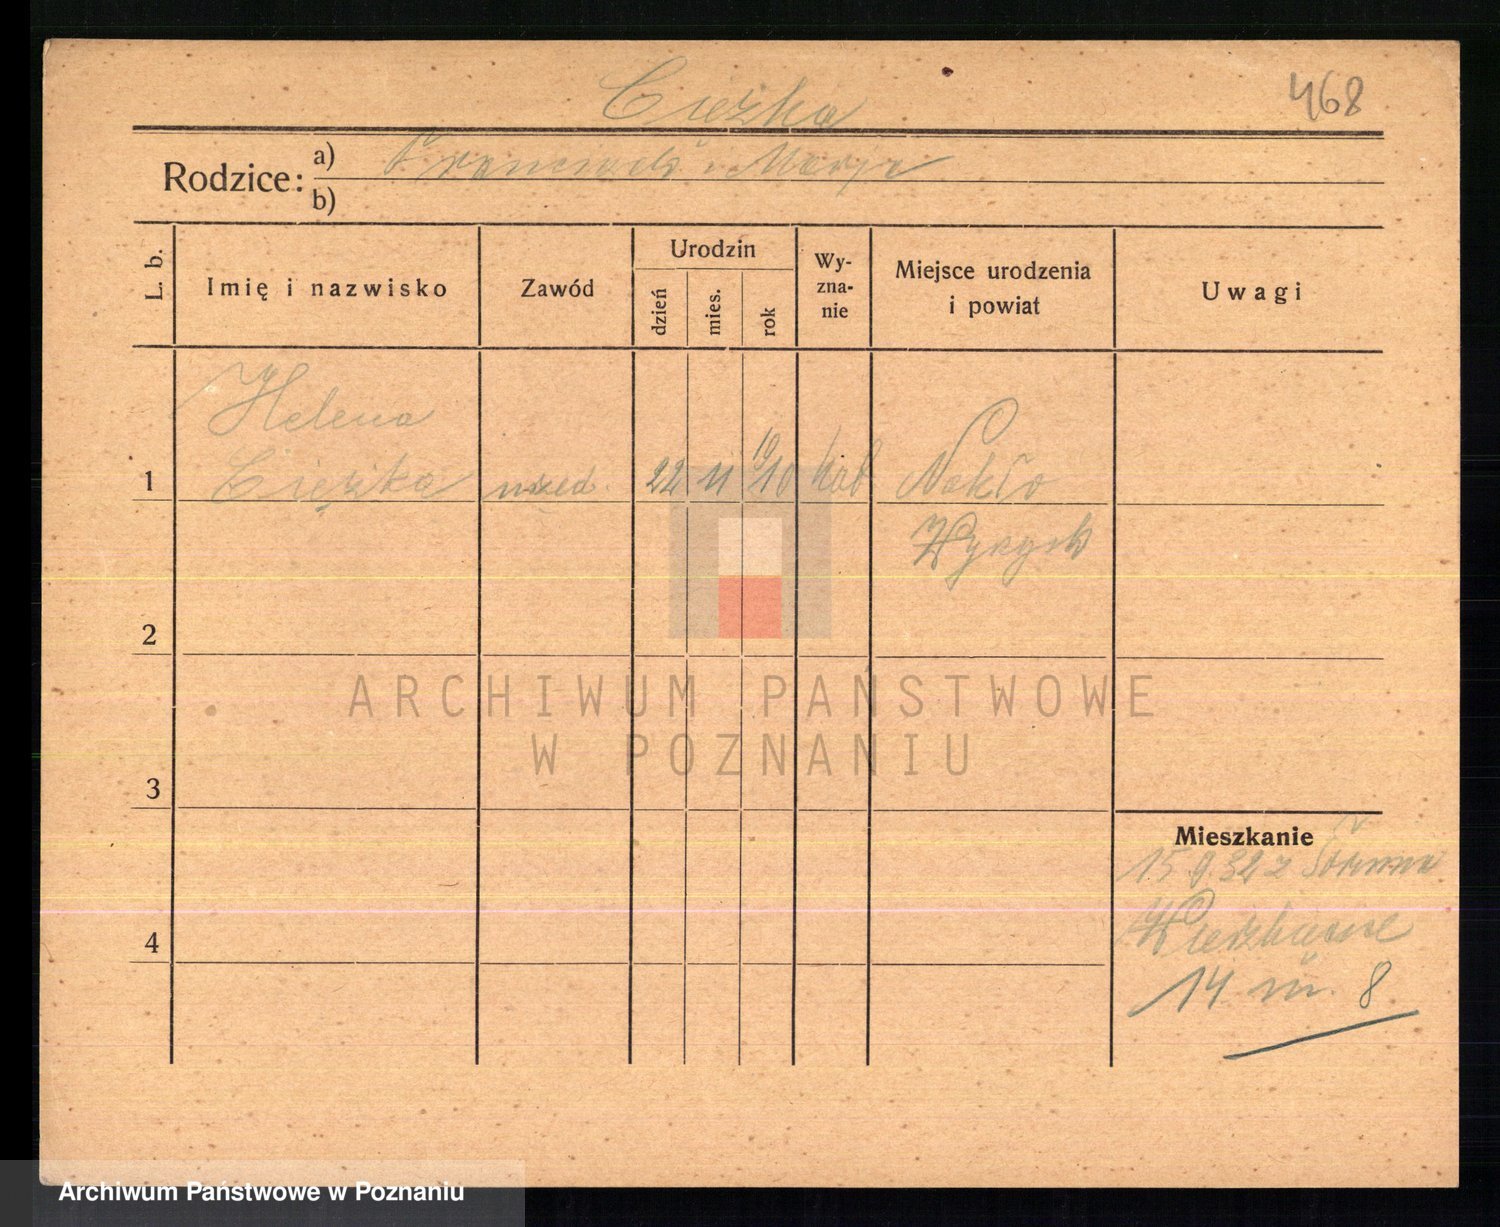 468
Ciężka
Rodzice: a) Franciszek i Marja
b)
L. b.
Imię i nazwisko
Zawód
Urodzin
dzień
mies.
rok
Wy-
zna-
nie
Miejsce urodzenia
i powiat
Uwagi
Helena
1 Ciężka urzęd. 22 11 1910 kat Nakło
Wyrzysk
2
3
4
Mieszkanie
15 9.32 z
14 m. 8
ARCHIWUM PAŃSTWOWE
W POZNANIU
Archiwum Państwowe w Poznaniu